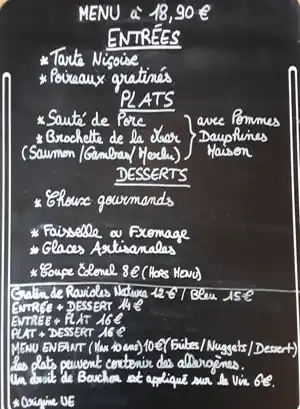 MENU à 18,90 €
ENTRÉES
* Tarte Niçoise
* Poireaux gratinés
PLATS
* Sauté de Porc
* Brochette de la Mer
(Saumon/Gambas/Merlu)
avec Pommes
Dauphines
Maison
DESSERTS
* Choux gourmands
* Faisselle ou Fromage
* Glaces Artisanales
* Coupe Colonel 8€ (HORS MENU)
Gratin de Ravioles Nature 12€ / Bleu 15€
ENTRÉE + DESSERT 14€
ENTRÉE + PLAT 16€
PLAT + DESSERT 16€
MENU ENFANT (Max 10 ans) 10€ (Frites/Nuggets/Dessert)
Les plats peuvent contenir des allergènes.
Un droit de Bouchon est appliqué sur le Vin 6€.
* Origine UE